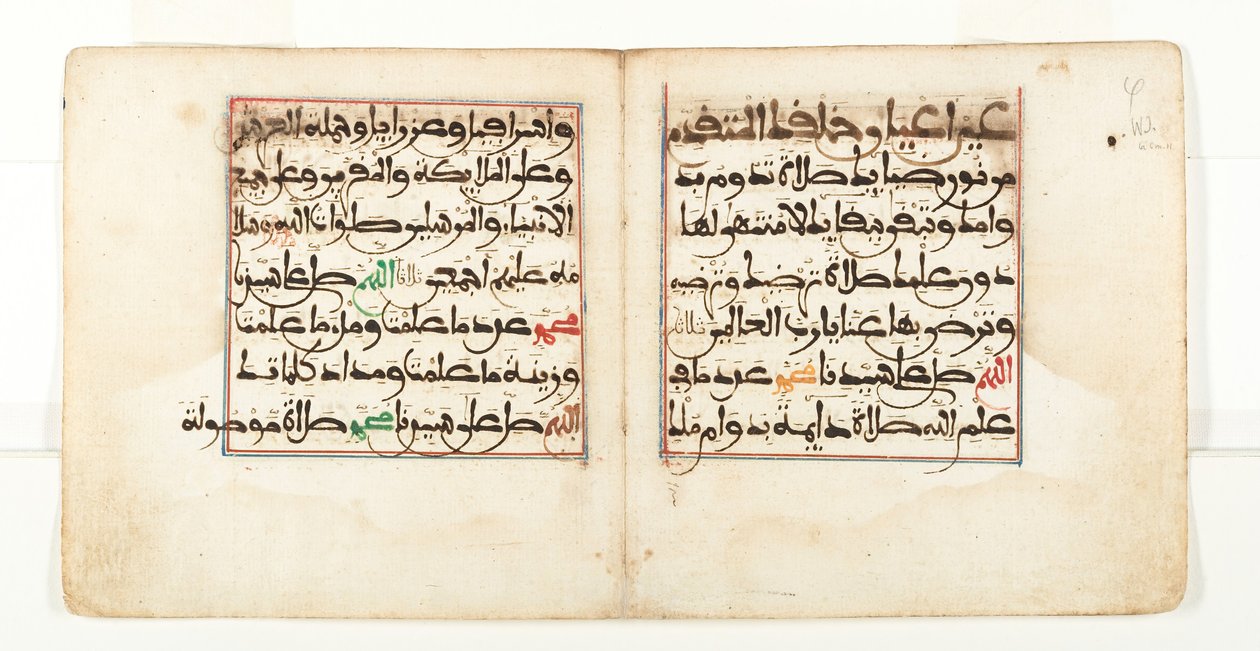 عين اعيان خلفك المتقدم
من نور ضيايك صلاة تدوم بد
وامك وتبقى ببقايك لا منتهى لها
دون علمك صلاة ترضيك وترضيه
وترضى بها عنا يا رب العالمين ثلاثا
اللهم صل على سيدنا محمد عدد ما في
علم الله صلاة دايمة بدوام ملك
واسرافيل وعزرايل وحملة العرش
وعلى الملايكة والمقربين وعلى جميع
الانبياء والمرسلين صلوات الله وسلا
مه عليهم اجمعين ثلاثا اللهم صل على سيدنا
محمد عدد ما علمت وملء ما علمت
وزنة ما علمت ومداد كلماتك
اللهم صل على سيدنا محمد صلاة موصولة